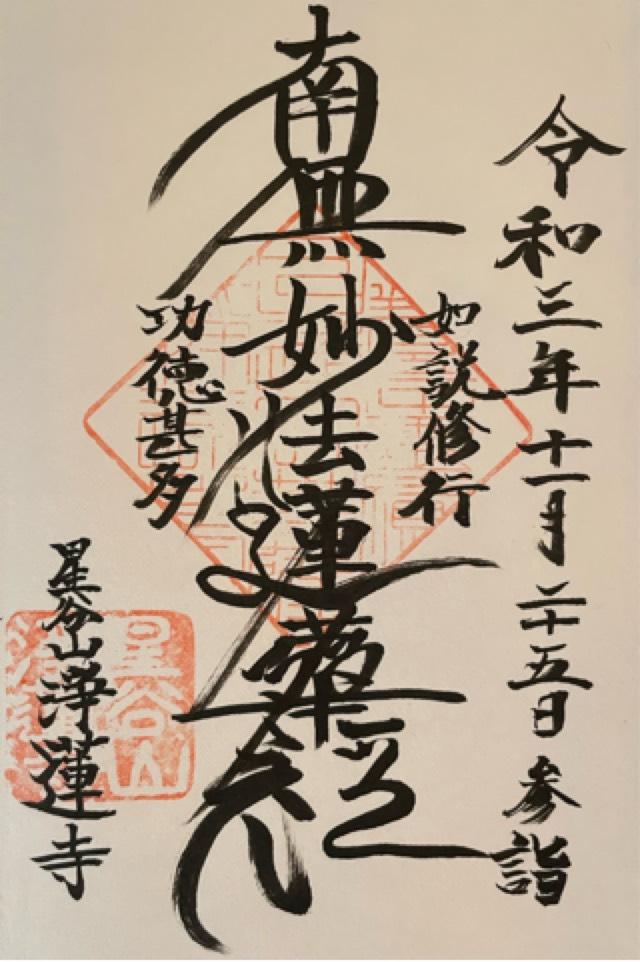 令和三年十一月二十五日 参詣
如説修行
南無妙法蓮華経
功徳甚多
星谷山 浄蓮寺
星谷山